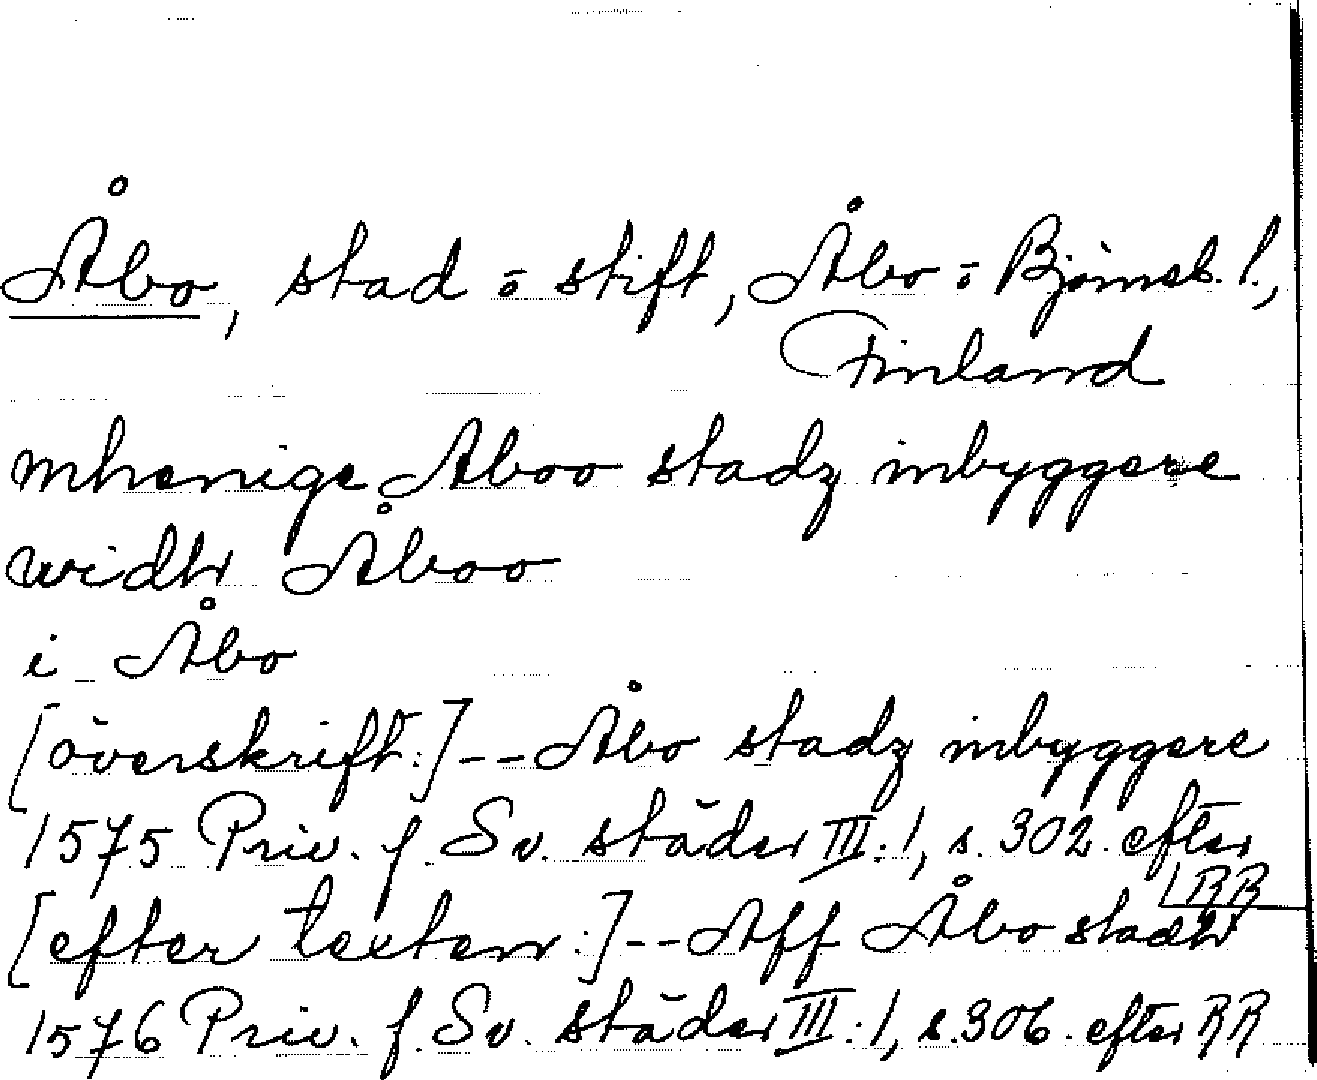 Åbo, stad o stift, Åbo o Björneb. l.,
Finland
mhenige Aboo stadz inbyggere
widh Åboo
i Åbo
[överskrift:]--Åbo stadz inbyggere
1575 Priv. f. Sv. städer III:1, s. 302. efter
RR
[efter texten:]--Aff Åbo stadh
1576 Priv. f. Sv. städer III:1, s. 306. efter RR